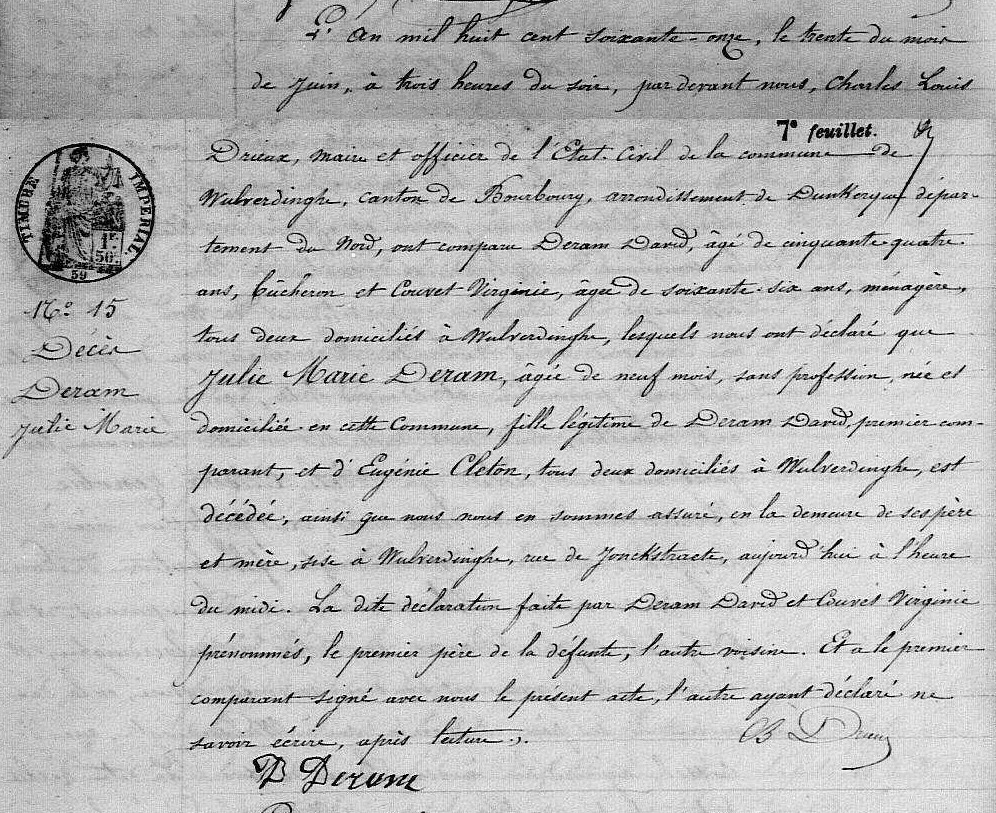 L'an mil huit cent soixante-onze, le trente du mois
de juin, à trois heures du soir, par devant nous, Charles Louis
7e feuillet.
Drieux, maire et officier de l'Etat-Civil de la commune de
Wulverdinghe, canton de Bourbourg, arrondissement de Dunkerque dépar-
tement du Nord, ont comparu Deram David, âgé de cinquante-quatre
ans, bûcheron et Couvet Virginie, âgée de soixante-six ans, ménagère,
tous deux domiciliés à Wulverdinghe, lesquels nous ont déclaré que
Julie Marie Deram, âgée de neuf mois, sans profession, née et
domiciliée en cette Commune, fille légitime de Deram David, premier com-
parant, et d'Eugénie Cleton, tous deux domiciliés à Wulverdinghe, est
décédée, ainsi que nous nous en sommes assuré, en la demeure de ses père
et mère, sise à Wulverdinghe, rue de Jonckstraete, aujourd'hui à l'heure
du midi. La dite déclaration faite par Deram David et Couvet Virginie
prénommés, le premier père de la défunte, l'autre voisine. Et a le premier
comparant signé avec nous le présent acte, l'autre ayant déclaré ne
savoir écrire, après lecture.
Drieux
D Deram
TIMBRE IMPERIAL
1f
50c
59
No 15
Décès
Deram
Julie Marie